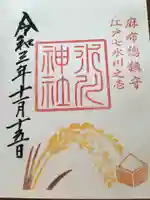 麻布總鎮守
江戸七氷川之壱
氷川
神社
令和三年十月十五日